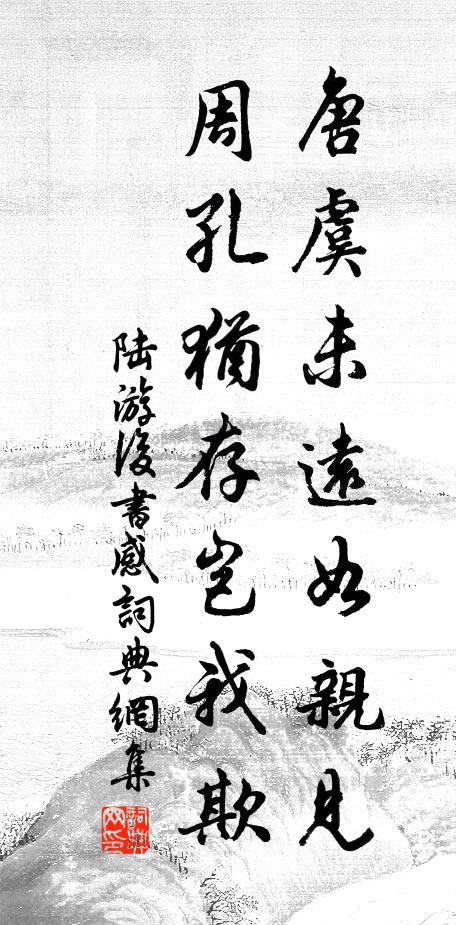 唐虞未遠如親見
周孔猶存豈我欺
陸游後書感詞典網集